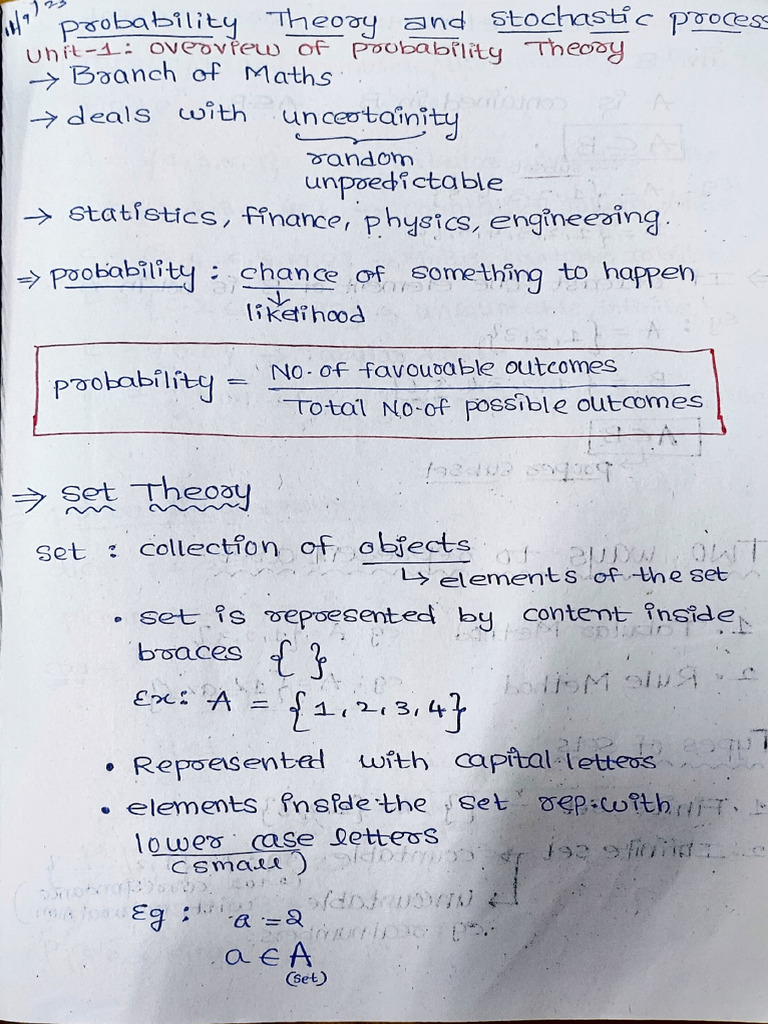 11/9/23
probability Theory and stochastic process
Unit-1: overview of probability Theory
→ Branch of Maths
→ deals with uncertainity
random
unpredictable
→ statistics, finance, physics, engineering.
⇒ probability : chance of something to happen
↓
likelihood
probability = No. of favourable outcomes
Total No. of possible outcomes
⇒ set Theory
set : collection of objects
↳ elements of the set
• set is represented by content inside
braces { }
Ex: A = {1, 2, 3, 4}
• Represented with capital letters
• elements inside the set rep. with
lower case letters
(small)
Eg : a = 2
a ∈ A
(set)